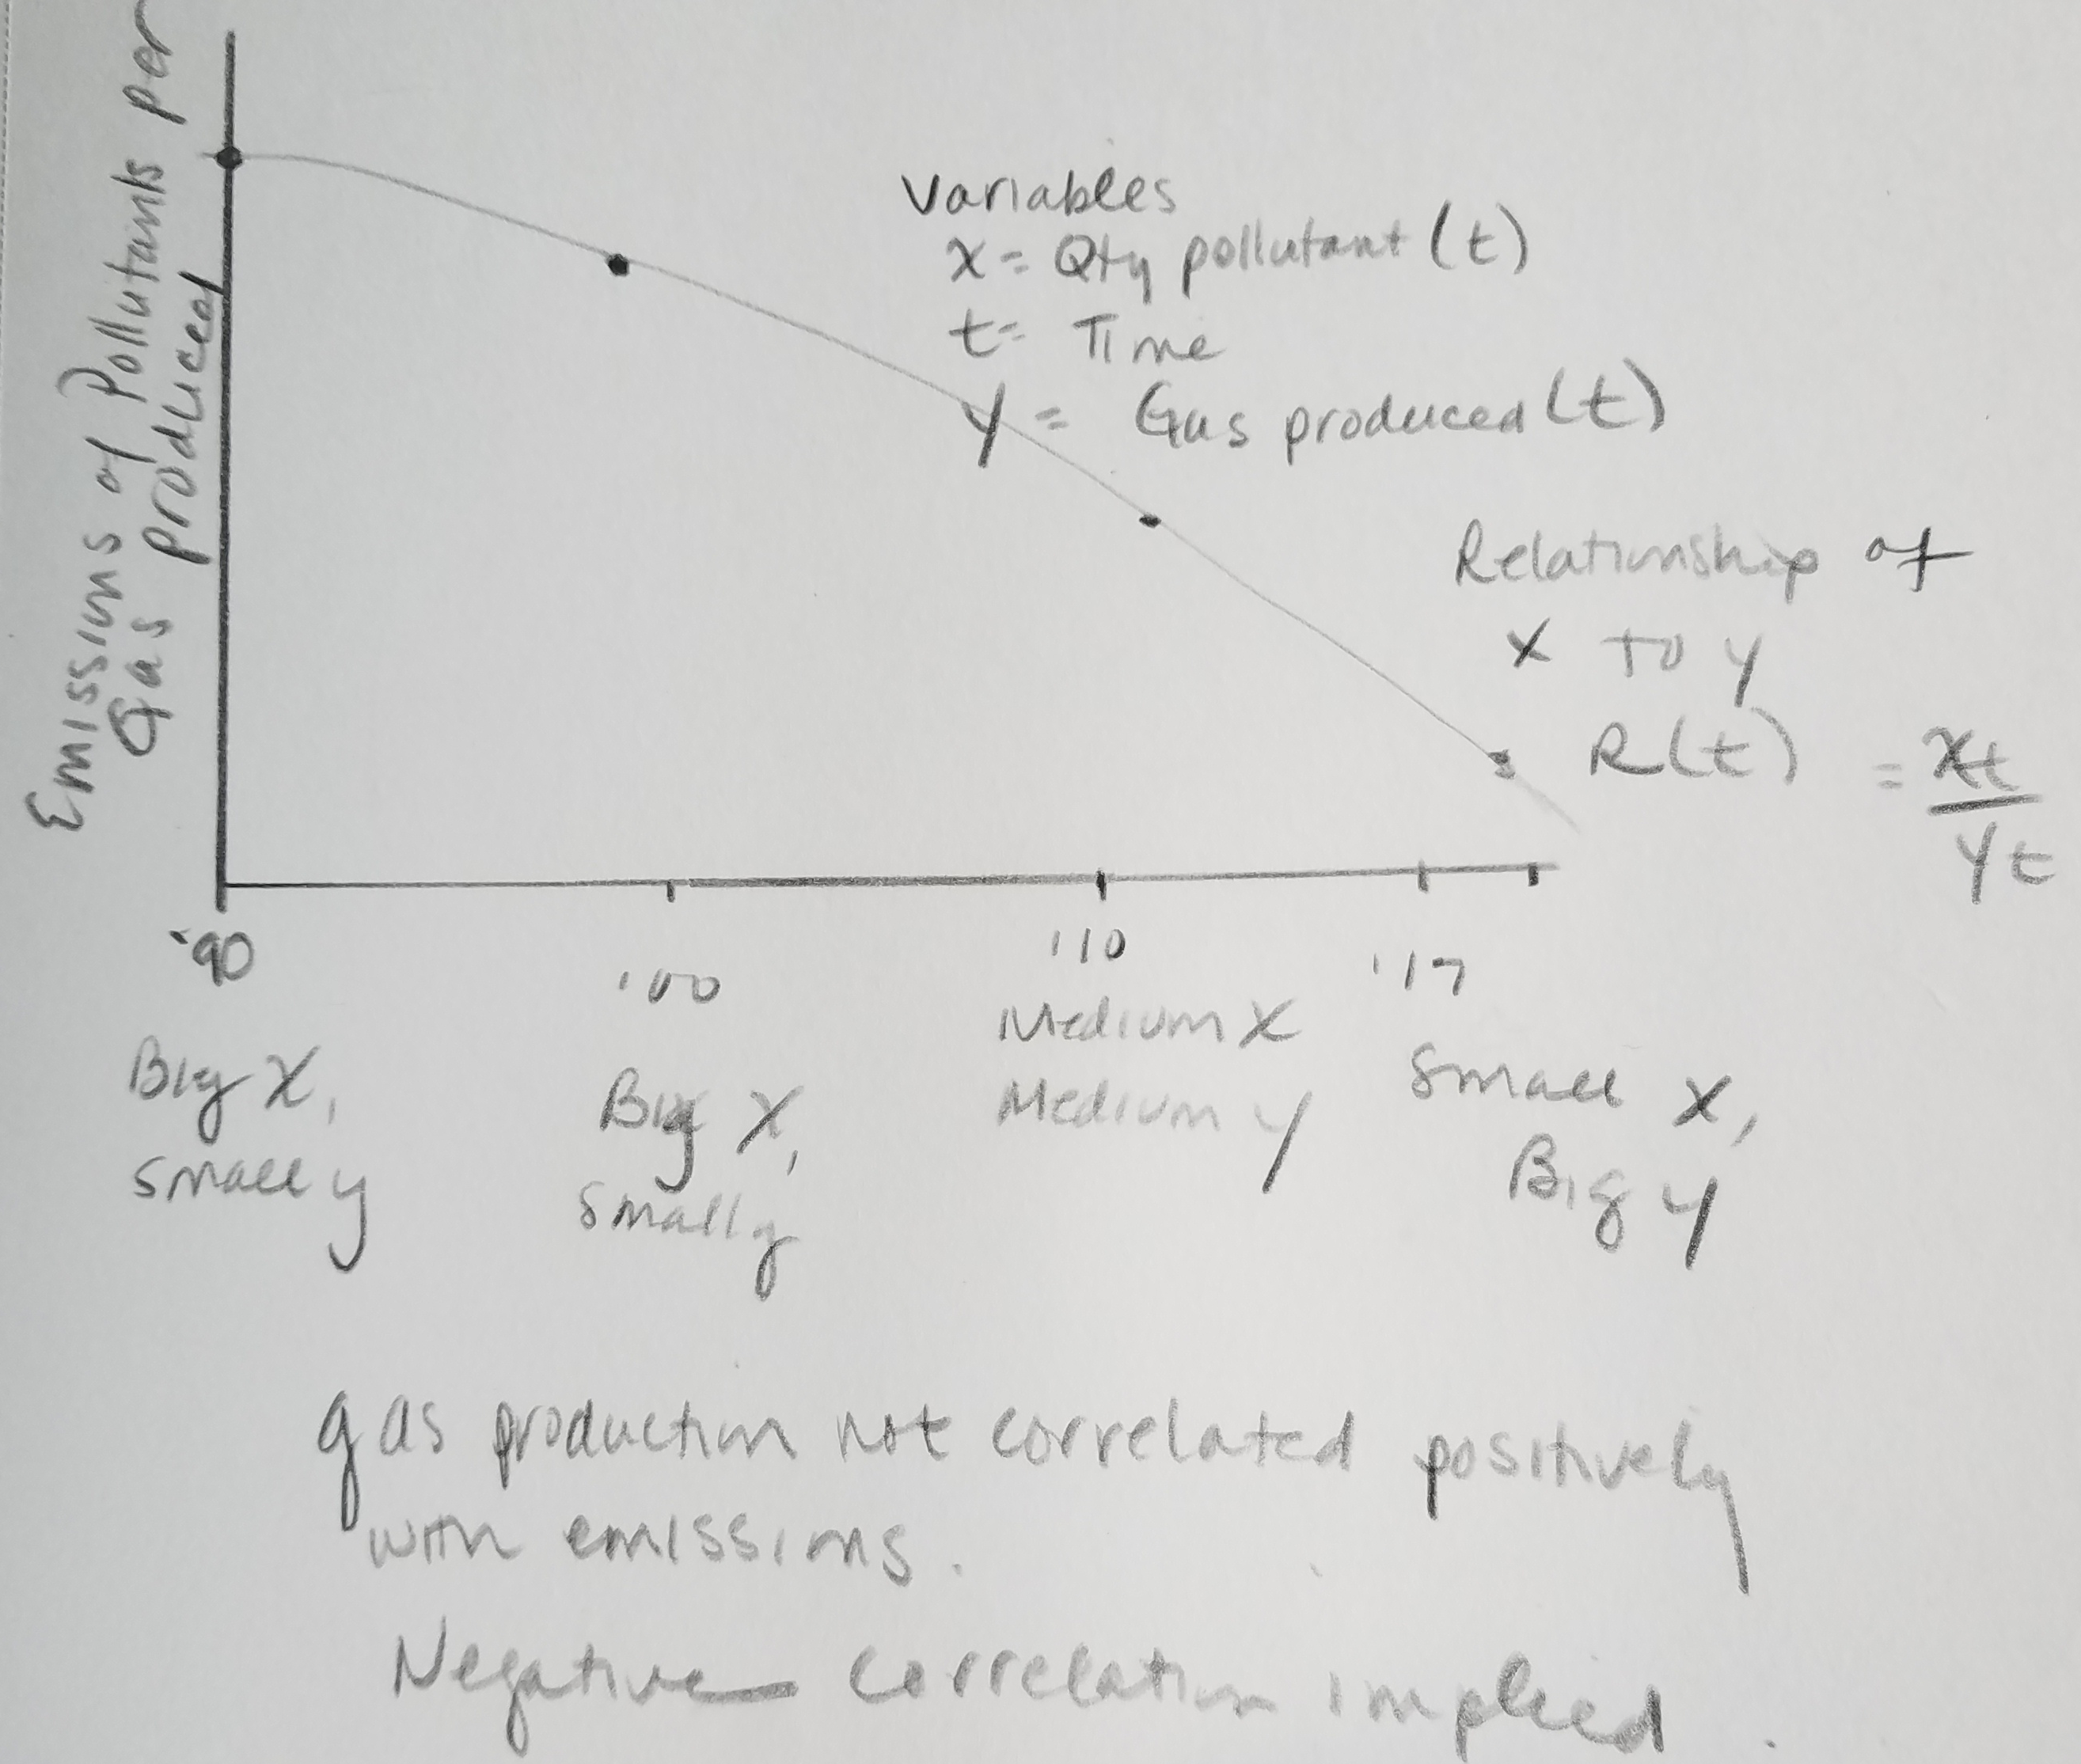 Emissions of Pollutants per
Gas produced
Variables
x = Qty pollutant (t)
t = Time
y = Gas produced (t)
Relationship of
x to y
R(t) = xt
yt
'90
'00
'110
'17
Big x,
small y
Big x,
small y
Medium x
Medium y
Small x,
Big y
gas production not correlated positively
with emissions.
Negative correlation implied.